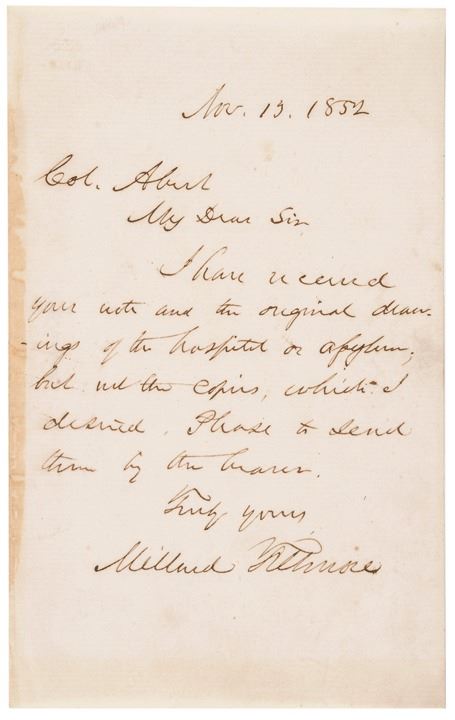 Nov. 13. 1852
Col. Abert
My Dear Sir
I have received
your note and the original draw-
ings of the hospital or asylum,
but not the copies, which I
desired. Please to send
them by the bearer.
Truly yours
Millard Fillmore